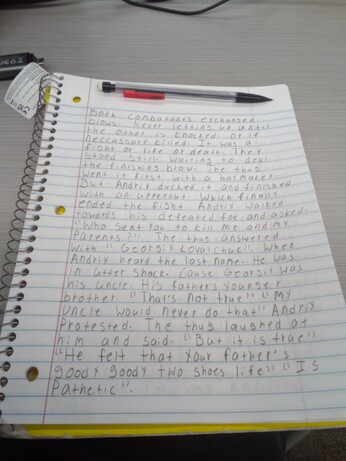 Both combatants exchanged
blows. Never letting up until
the other is knocked. Or if
neccessary killed. It was a
fight or life or death. They
stand still waiting to deal
the finishing blow. The thug
went it first with a haymaker
But Andriy ducked it and finished
with an upperout which finally
ended the fight. Andriy walked
towards his defeated foe and asked.
"Who sent you to kill me and my
Parents?" The thug answered
with "Georgiy Kovalchuk". When
Andriy heard the last name. He was
in utter shock. Cause Georgiy was
his uncle. His father's younger
brother. "That's not true" "My
uncle would never do that" Andriy
Protested. The thug laughed at
him and said. "But it is true"
"He felt that your father's
goody goody two shoes life" "Is
Pathetic".